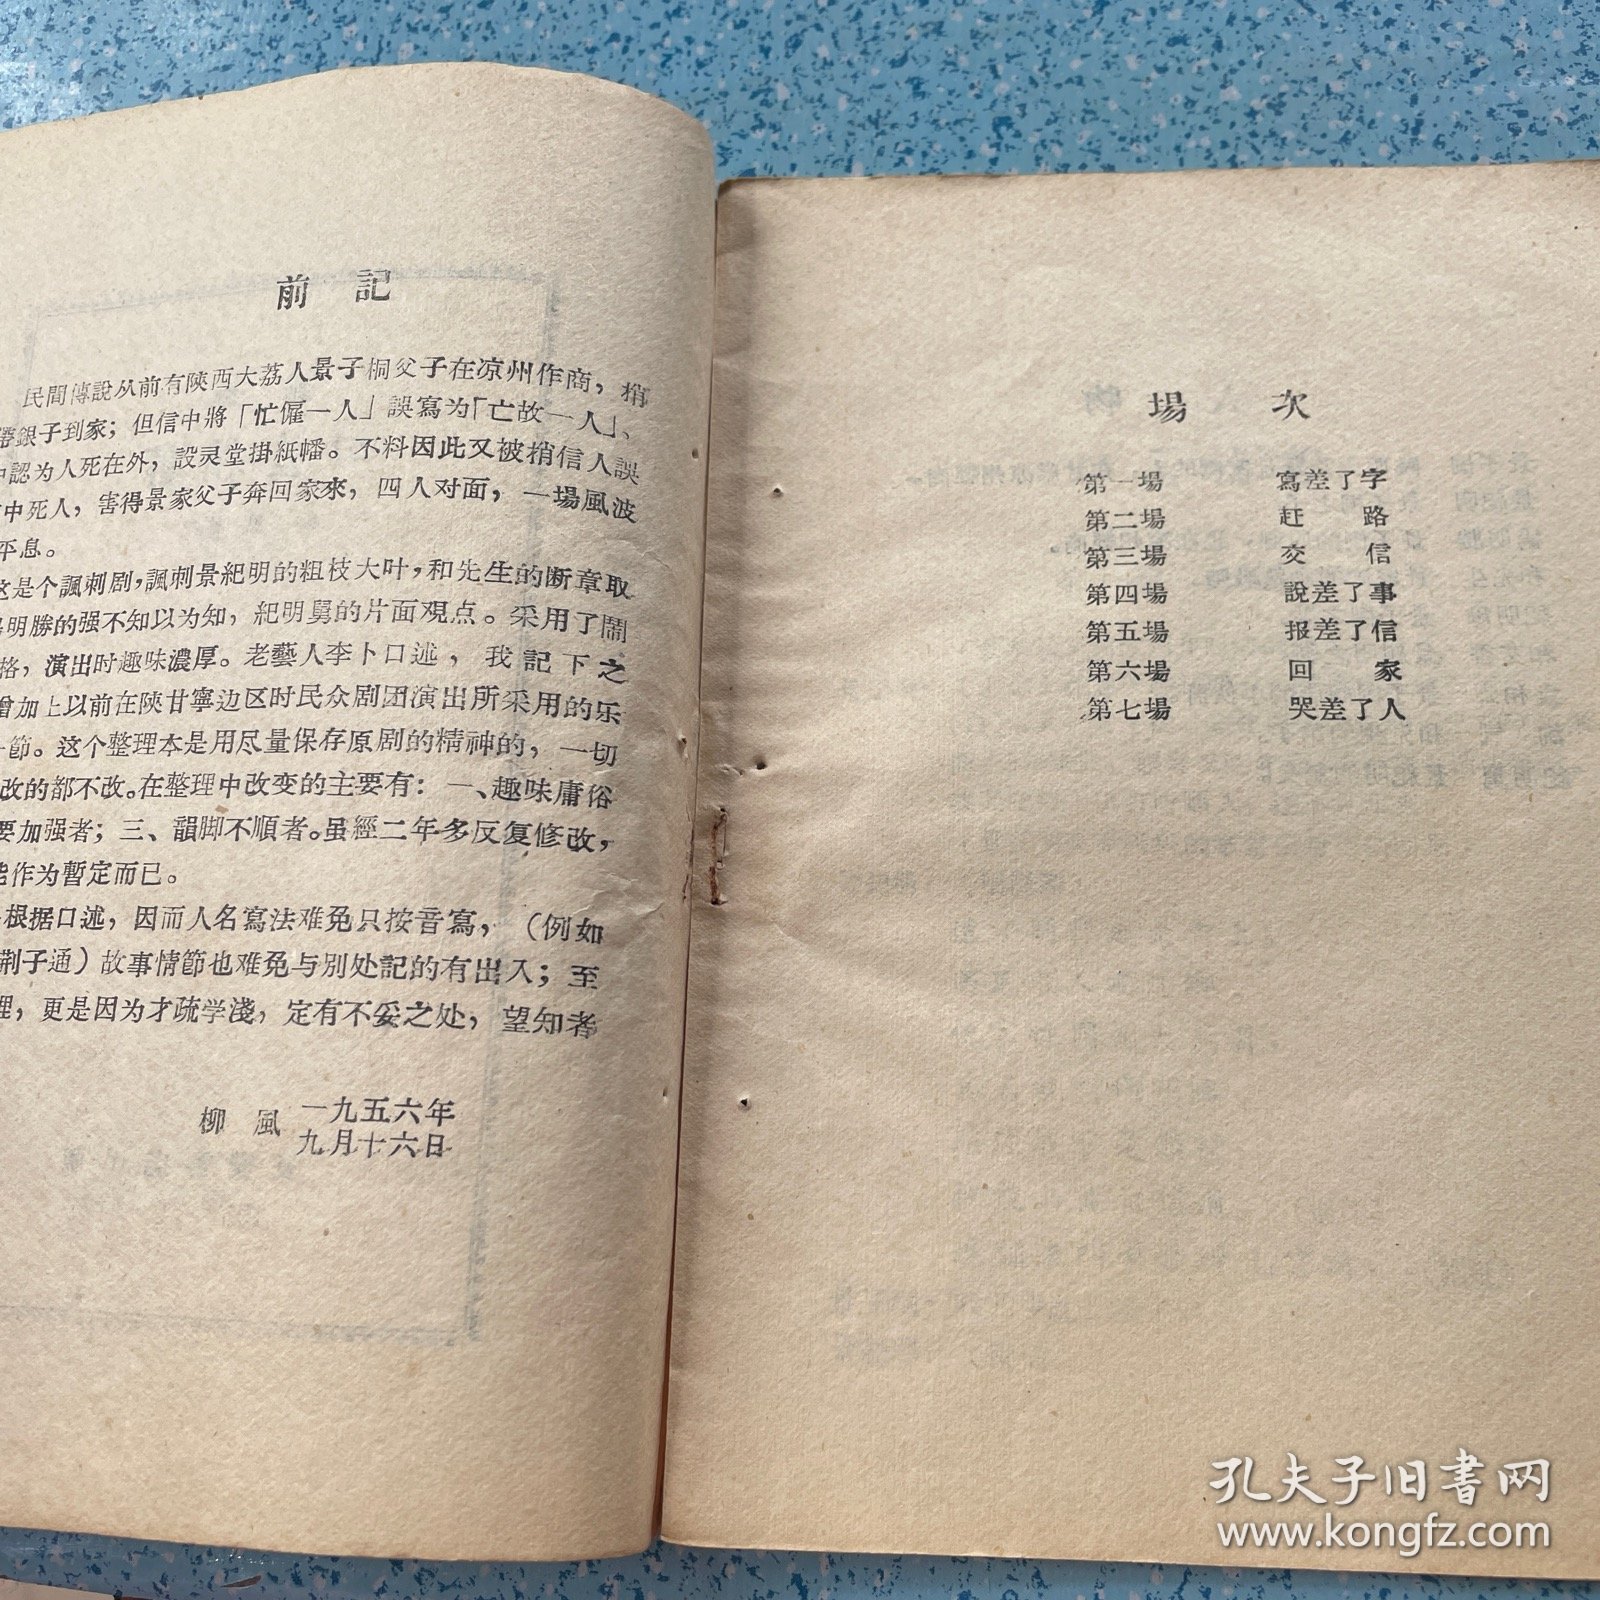 前記
民間傳說从前有陝西大荔人景子桐父子在凉州作商，捎
帶銀子到家；但信中將「忙僱一人」誤寫为「亡故一人」、
中認为人死在外，設灵堂掛紙幡。不料因此又被捎信人誤
中死人，害得景家父子奔回家來，四人对面，一場風波
平息。
这是个諷刺剧，諷刺景紀明的粗枝大叶，和先生的断章取
明勝的强不知以为知，紀明舅的片面观点。采用了鬧
格，演出时趣味濃厚。老藝人李卜口述，我記下之
增加上以前在陝甘寧边区时民众剧团演出所采用的乐
節。这个整理本是用尽量保存原剧的精神的，一切
改的都不改。在整理中改变的主要有：一、趣味庸俗
要加强者；三、韻脚不順者。虽經二年多反复修改，
能作为暫定而已。
根据口述，因而人名寫法难免只按音寫，（例如
荆子通）故事情節也难免与别处記的有出入；至
理，更是因为才疏学淺，定有不妥之处，望知者
柳風 一九五六年
九月十六日
場次
第一場 寫差了字
第二場 赶路
第三場 交信
第四場 說差了事
第五場 报差了信
第六場 回家
第七場 哭差了人
孔夫子旧书网
www.kongfz.com